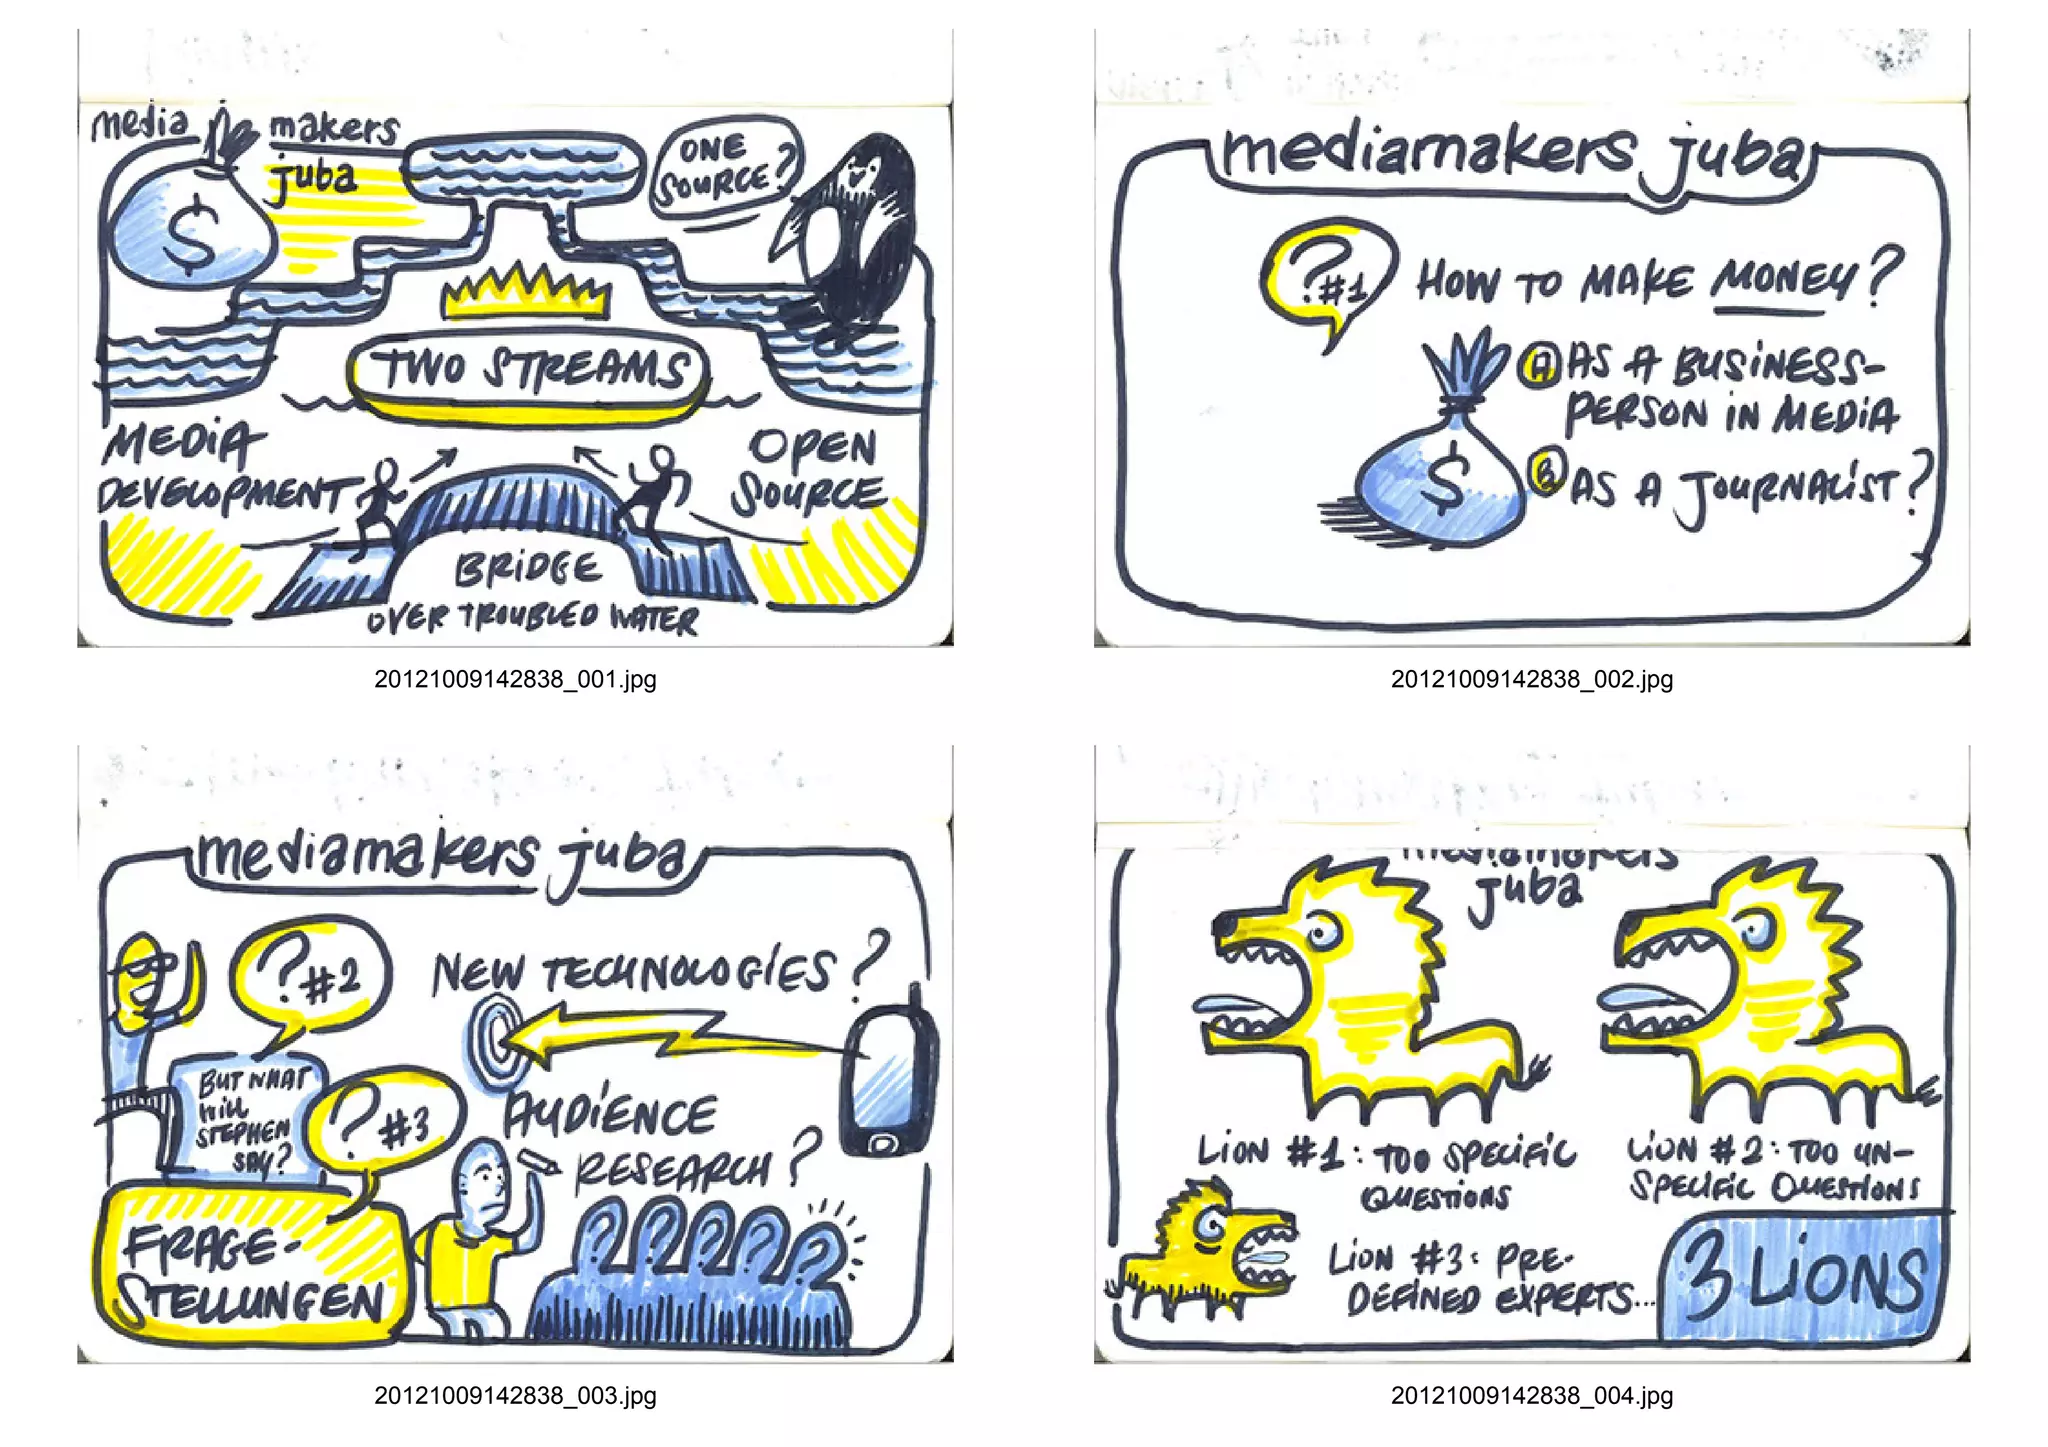 media makers
juba
$
ONE
SOURCE?
TWO STREAMS
MEDIA
DEVELOPMENT
OPEN
SOURCE
BRIDGE
OVER TROUBLED WATER
20121009142838_001.jpg
mediamakers juba
?#1
HOW TO MAKE MONEY?
$
A AS A BUSINESS-
PERSON IN MEDIA
B AS A JOURNALIST?
20121009142838_002.jpg
mediamakers juba
?#2
NEW TECHNOLOGIES?
BUT WHAT
WILL
STEPHEN
SAY?
?#3
AUDIENCE
RESEARCH?
? ? ? ? ?
FRAGE-
STELLUNGEN
20121009142838_003.jpg
mediamakers
juba
LION #1: TOO SPECIFIC
QUESTIONS
LION #2: TOO UN-
SPECIFIC QUESTIONS
LION #3: PRE-
DEFINED EXPERTS...
3 LIONS
20121009142838_004.jpg